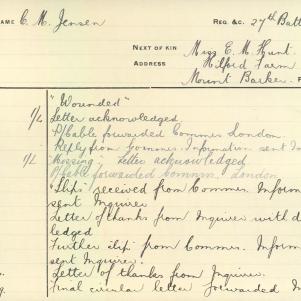 NAME C. M. Jensen REG &C. 27th Batt
NEXT OF KIN Miss E. M. Hunt
ADDRESS Hilford Farm
Mount Barker.
"Wounded"
1/L Letter acknowledged
P/Cable forwarded Commrs London.
Reply from Commrs. Information sent In
1/L "Missing", Letter acknowledged
P/Cable forwarded Commrs. London
"Slip" received from Commrs. Inform
sent Inquirer
Letter of thanks from Inquirer with d
ledged
Further slip from Commrs. Inform
sent Inquirer.
Letter of thanks from Inquirer.
Final circular letter forwarded